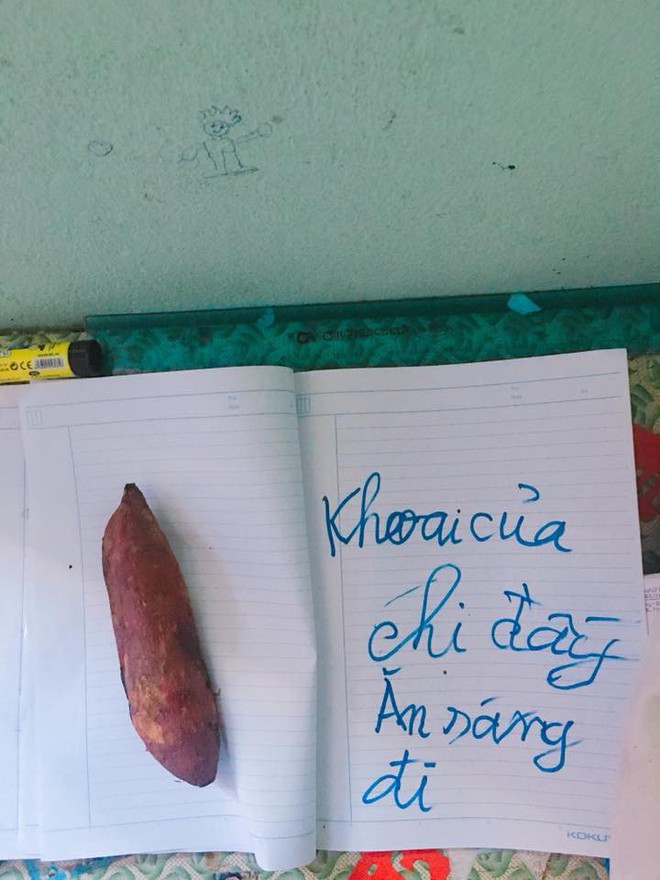 Khoai của
chi đây
Ăn sáng
đi
KOKU